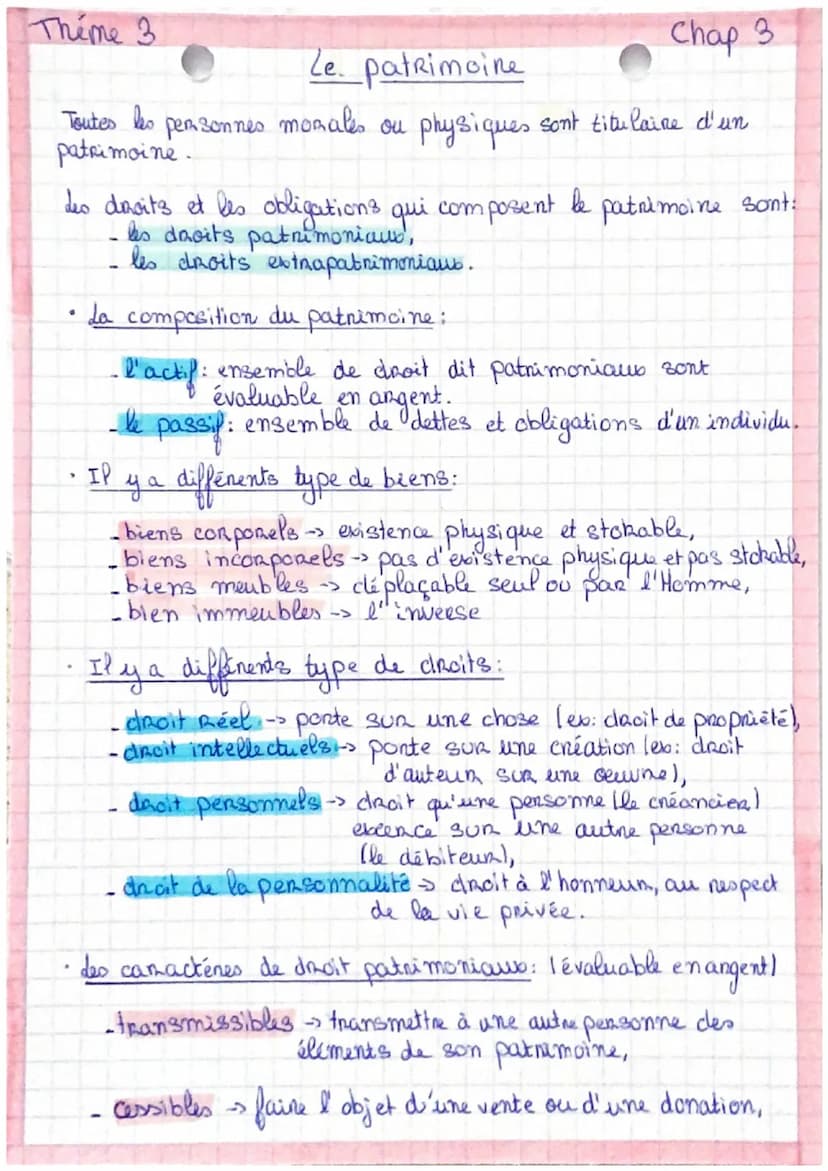 Thème 3
Chap 3
Le patrimoine
Toutes les personnes morales ou physiques sont titulaire d'un
patrimoine.
Les droits et les obligations qui composent le patrimoine sont:
- les droits patrimoniaux,
- les droits extrapatrimoniaux.
• La composition du patrimoine:
- l'actif: ensemble de droit dit patrimoniaux sont
évaluable en argent.
- le passif: ensemble de dettes et obligations d'un individu.
• Il y a différents type de biens:
- biens corporels -> existence physique et stokable,
- biens incorporels -> pas d'existence physique et pas stokable,
- biens meubles -> déplaçable seul ou par l'Homme,
- bien immeubles -> l'inverse
• Il y a différents type de droits:
- droit réel -> porte sur une chose (ex: droit de propriété),
- droit intellectuels -> porte sur une création (ex: droit
d'auteur sur une oeuvre),
- droit personnels -> droit qu'une personne (le créancier)
exerce sur une autre personne
(le débiteur),
- droit de la personnalité -> droit à l'honneur, au respect
de la vie privée.
• Les caractères de droit patrimoniaux: (évaluable en argent)
- transmissibles -> transmettre à une autre personne des
éléments de son patrimoine,
- cessibles -> faire l'objet d'une vente ou d'une donation,